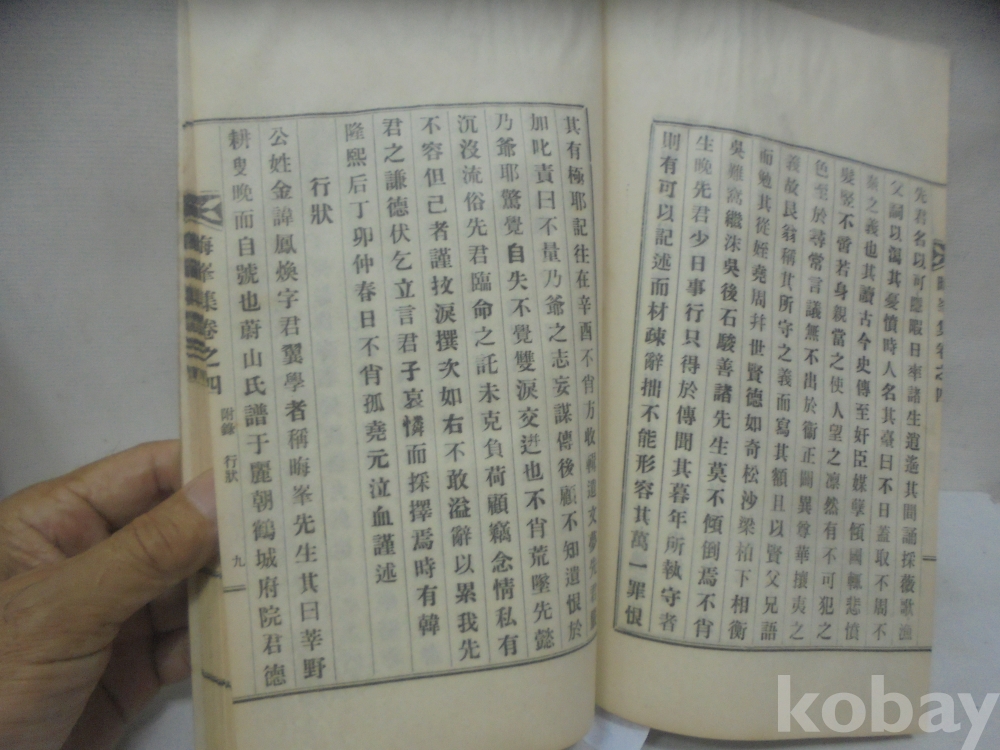 先君名以可隱暇日率諸生逍遙其間誦採薇歌漁
父詞以蕩其憂憤時人名其臺曰不日蓋取不周不
秦之義也其讀古今史傳至奸臣媒孽傾國輒悲憤
髮竪不啻若身親當之使人望之凜然有不可犯之
色至於尋常言議無不出於衛正闢異尊華攘夷之
義故艮翁稱其所守之義而寫其額且以賢父兄語
而勉其從姪堯周幷世賢德如奇松沙梁栢下相衡
吳難窩繼洙吳後石駿善諸先生莫不傾倒焉不肖
生晚先君少日事行只得於傳聞其暮年所執守者
則有可以記述而材疎辭拙不能形容其萬一罪恨
其有極耶記往在辛酉不肖方收
遺文
加叱責曰不量乃爺之志妄謀傳後顧不知遺恨於
乃爺耶驚覺自失不覺雙淚交迸也不肖荒墜先懿
沉沒流俗先君臨命之託未克負荷顧竊念情私有
不容但已者謹抆淚撰次如右不敢溢辭以累我先
君之謙德伏乞立言君子哀憐而採擇焉時有韓
隆熙后丁卯仲春日不肖孤堯元泣血謹述
行狀
公姓金諱鳳煥字君翼學者稱晦峯先生其曰莘野
耕叟晚而自號也蔚山氏譜于麗朝鶴城府院君德
晦峯集卷之四
附錄
行狀
九
kobay